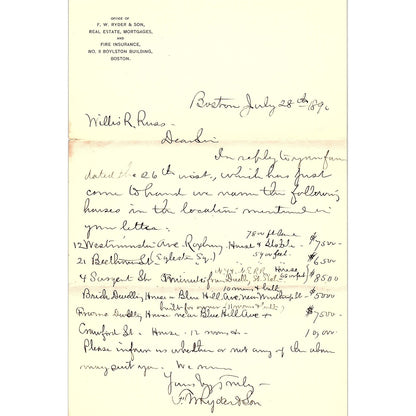 OFFICE OF
F. W. RYDER & SON,
REAL ESTATE, MORTGAGES,
AND
FIRE INSURANCE,
No. 8 BOYLSTON BUILDING,
BOSTON.
Boston July 28th 189
Willis R. Russ -
Dear Sir
In reply to your fav
dated the 26th inst., which has just
come to hand we name the following
houses in the location mentioned in
your letter.
7800 ft land
12 Westminster Ave. Roxbury House & Stable $7500-
5400 feet
21 Beethoven St (Egleston Sq.) $6500
4 Sargent St. 5 minutes from Dudly St. House $8500
10 rooms & bath
Brick Dwelling House - Blue Hill Ave. near $5000
built for owner (10 rooms & bath)
Dwelling House near Blue Hill Ave + $7500-
Crawford St. House - 12 rooms + - 10,000-
Please inform us whether or not any of the above
may suit you. We remain
Yours very truly -
F. W. Ryder & Son